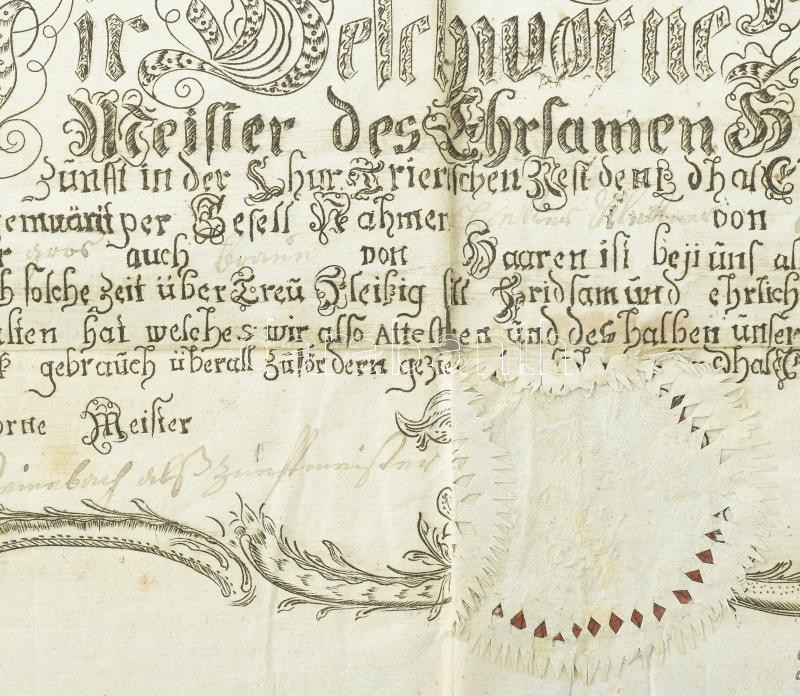 ir Geschworne
Meister des Ehrsamen H
Zunfft in der Chur Trierischen Residentz dhal E
gemwärtiper Gesell Nahmen von
gros auch braun von Haaren ist beji uns al
h solche Zeit über Treu Fleißig still Fridsam und ehrlich
alten hat welches wir also Attestiren und deshalben unser
gebrauch überall zufördern gezie dhal E
orne Meister
einebach alß Zunftmeister